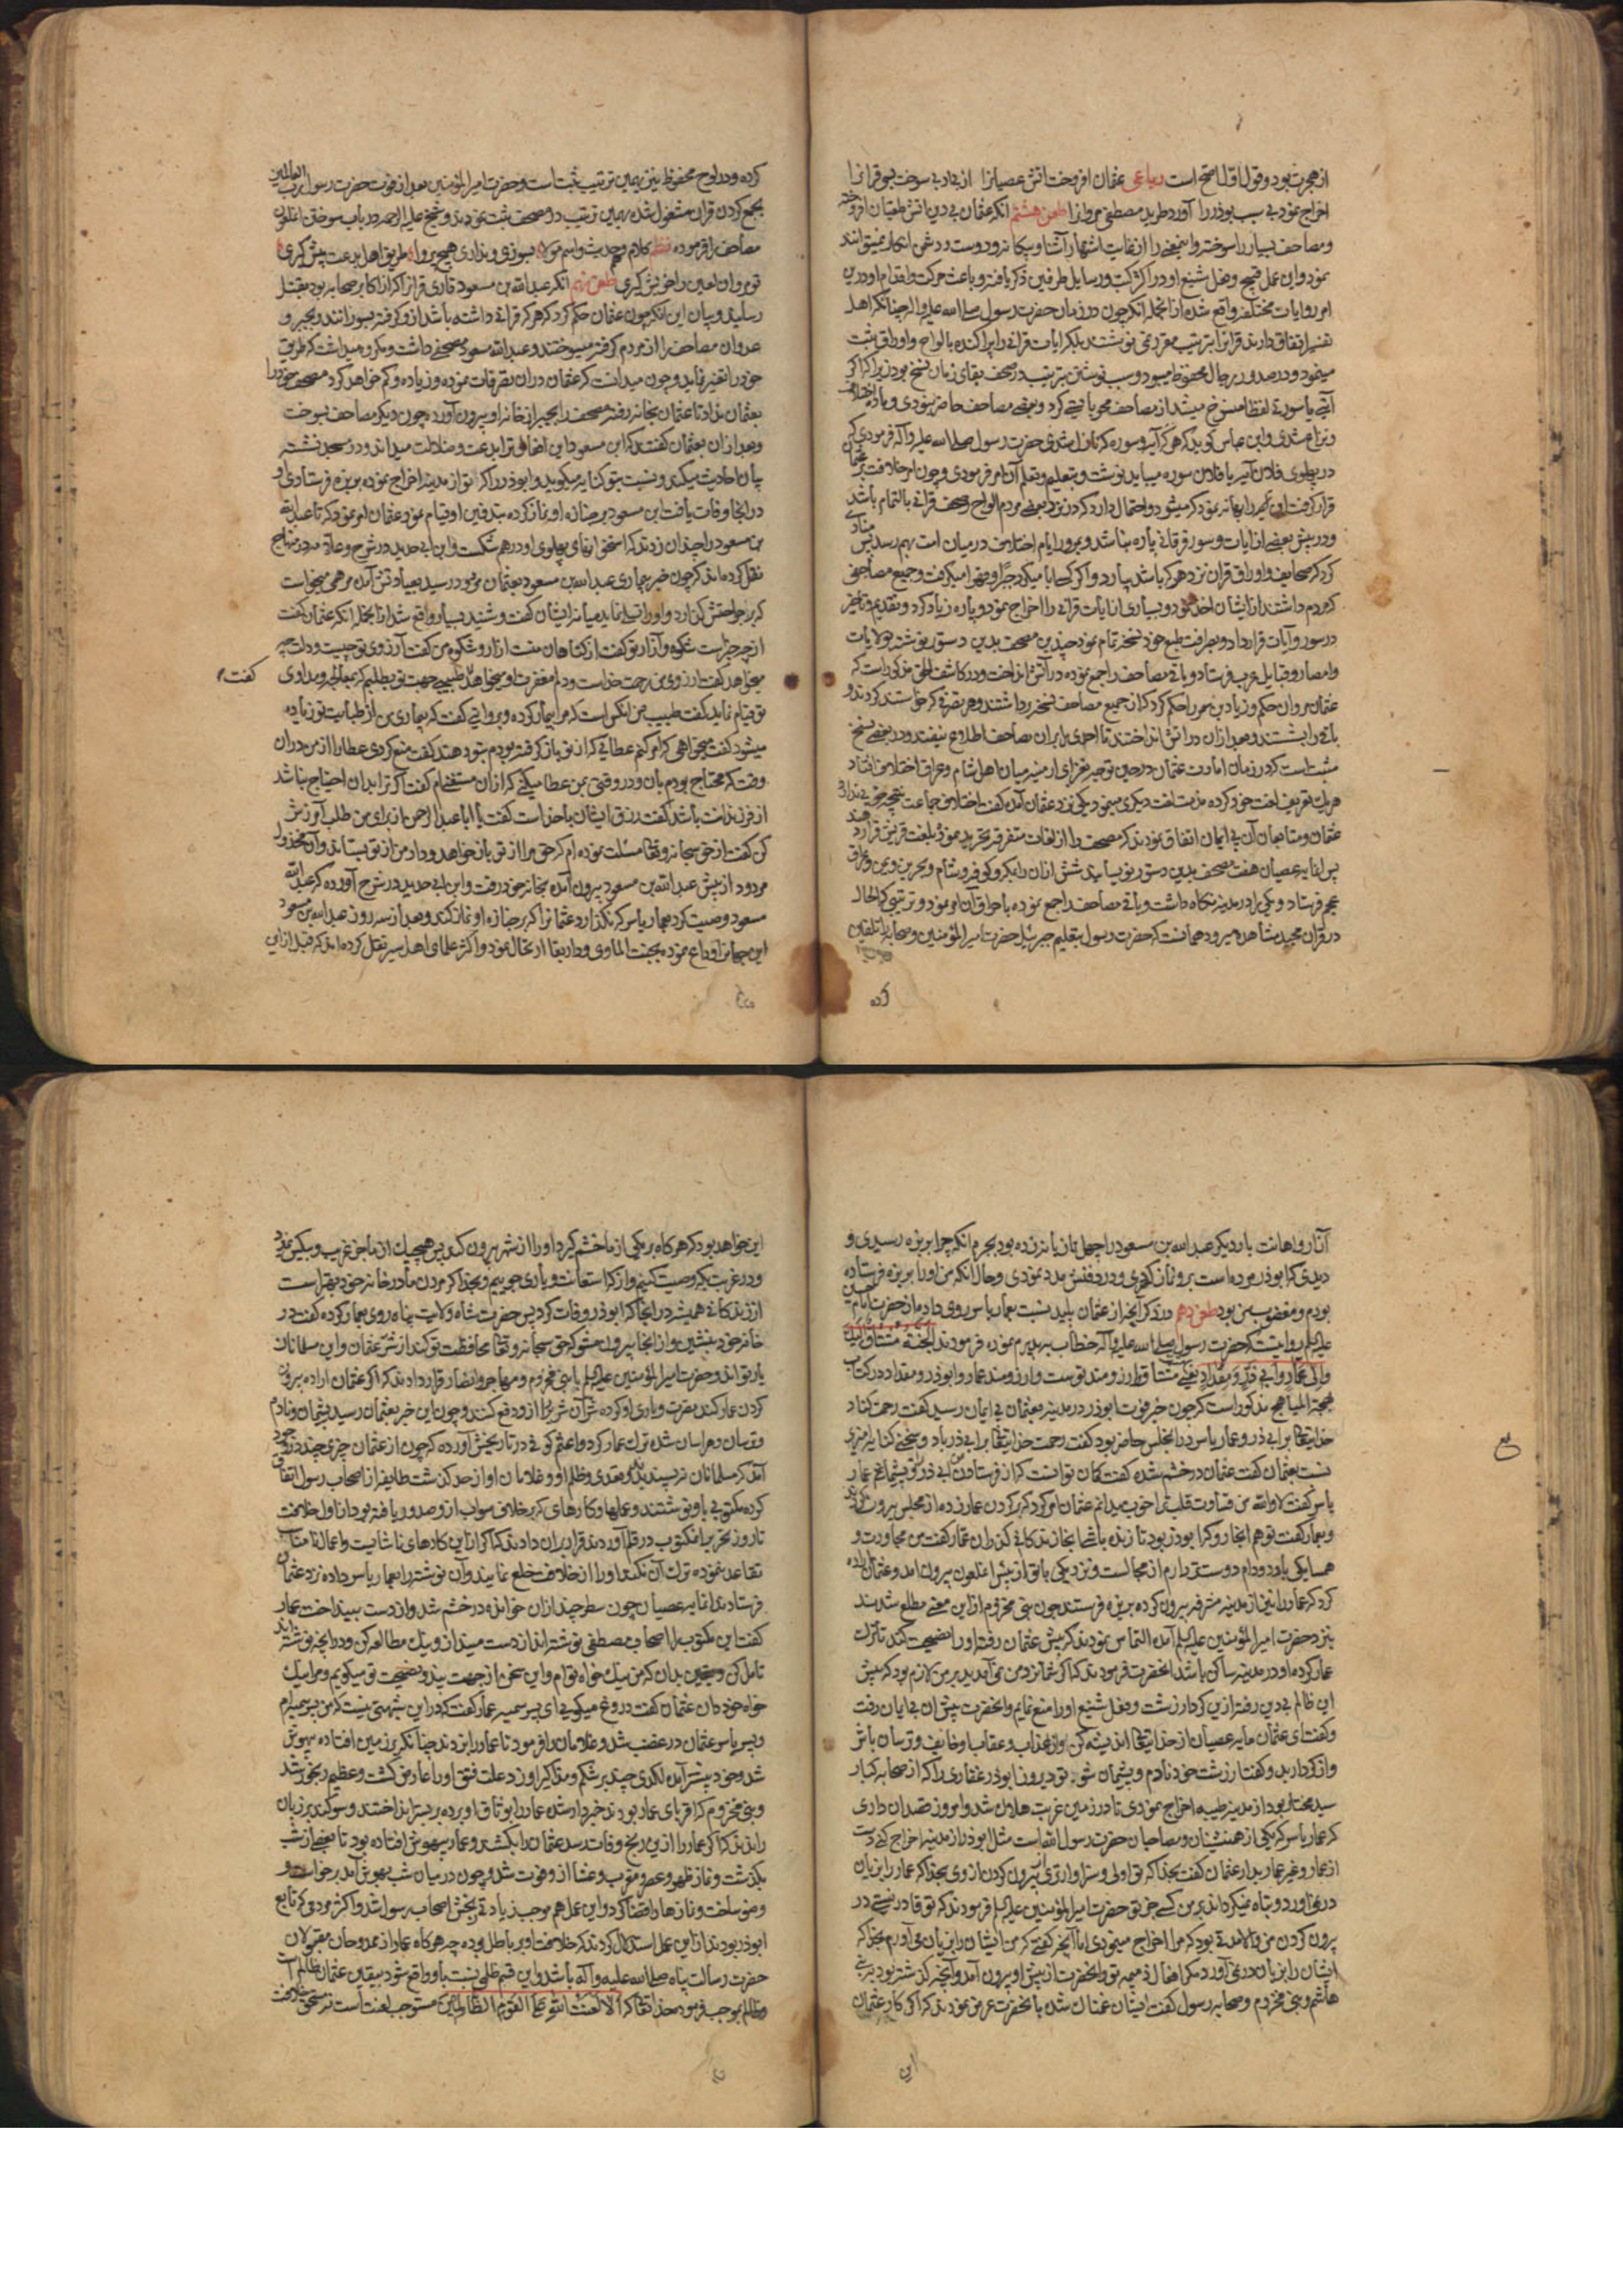 از هجرت بود و قول اول اصح است رباعی عثمان افروخت آتش عصیانرا از بی‌ادبی سوخت قرآنرا
اخراج نمود بی سبب بوذر را آورد طرید مصطفی مروانرا طعن هشتم آنکه عثمان بی دین آتش طغیان افروخته
و مصاحف بسیار را سوخته و این معنی را از غایت اشتهار آشنا و بیگانه و دوست و دشمن انکار نمیتوانند
نمود و این عمل قبیح و فعل شنیع او در اکثر کتب و رسایل طرفین ذکر یافته و باعث حرکت و اقدام او در این
امر روایات مختلفه واقع شده از آنجمله آنکه چون در زمان حضرت رسول صلی الله علیه و اله چنانکه اهل
تفسیر اتفاق دارند قرآنرا بترتیب مقرر نمی نوشتند بلکه آیات قرآنی را پراکنده بالواح و اوراق ثبت
مینمود و در صدور رجال محفوظ میبود و سبب نوشتن بترتیب در مصحف بقای زمان نسخ بود زیرا که اگر
آیتی یا سوره لفظا منسوخ میشد از مصاحف محو بایستی کرد و بعضی مصاحف حاضر نبودی و باعث اختلاف
و نزاع شدی و ابن عباس گوید که هر گه آیه و سوره که نازل شدی حضرت رسول صلی الله علیه و آله فرمودی که
در پهلوی فلان آیه یا فلان سوره میباید نوشت و بتعلیم و تعلم آن امر فرمودی و چون امر خلافت بعثمان
قرار گرفت این را بهانه نمود که میشود و احتمال دارد که در نزد بعضی مردم الواح و صحف قرآنی بالتمام باشد
و در پیش بعضی از آیات و سور قرآنی پاره نباشد و بمرور ایام اختلاف در میان امت بهم رسد پس منادی
کرد که صحایف و اوراق قرآن نزد هر که باشد بیارد و اگر کسی ابا میکرد جبرا و قهرا میگرفت و جمیع مصاحفی
که مردم داشتند از ایشان اخذ نمود و بسیاری از آیات قرآنی را اخراج نمود و پاره زیاد کرد و تقدیم و تاخیر
در سور و آیات قرار داد و بطرافت طبع خود نسخه تمام نمود چندین مصحف بدین دستور نوشته بولایات
و امصار و قبایل عرب فرستاد و باقی مصاحف را جمع نموده در آتش انداخت و در کاشف الحق مذکور است که
عثمان مروان حکم و زیاد بن سمره را حکم کرد که از جمیع مصاحف نسخه برداشتند و هر تصرفی که خواستند کردند و
باقی را بشستند و بعد از آن در آتش انداختند تا احدی بر ایران مصاحف اطلاع نیفتد و در بعضی نسخ
مثبت است که در زمان امارت عثمان در حین توجه بغزای ارمنیه میان اهل شام و عراق اختلاف افتاد
هر یک تعریف لغت خود کرده مذمت لغت دیگری مینمود یکی نزد عثمان آمده گفت اختلاف جماعت نتیجه خوبی ندارد
عثمان و متابعان آن بی ایمان اتفاق نمودند که مصحف را از لغات متفرقه تجرید نموده بلغت قریش قرار دهند
پس آن مایه عصیان هفت مصحف بدین دستور نویسانید شش از آن را بمکه و کوفه و شام و بحرین و یمن و عراق
عجم فرستاد و یکی را در مدینه نگاه داشت و باقی مصاحف را جمع نموده باحراق آن امر نمود و ترتیبی که الحال
در قرآن مجید مشاهده میرود همانست که حضرت رسول بتعلیم جبرئیل حضرت امیر المؤمنین و صحابه را تلقین
کرده
کرده و در لوح محفوظ نیز بهمین ترتیب ثبت است و حضرت امیر المؤمنین بعد از فوت حضرت رسول رب العالمین
بجمع کردن قرآن مشغول شده بهمین ترتیب در مصحف ثبت نموده‌اند و شیخ علیه الرحمه در باب سوختن اغلون
مصاحف را فرموده نظم کلام و حدیث و اسم مولا بسوزی و نداری هیچ پروا طریق اهل بدعت پیش گیری
توم و ان لعین را خویش گیری طعن نهم آنکه عبد الله بن مسعود قاری قرآنرا که از اکابر صحابه بود بقتل
رسانید و بیان این آنکه چون عثمان حکم کرد که هر که قرآنی داشته باشد از او گرفته بسوزانند و بجبر و
عدوان مصاحف را از مردم گرفته میسوختند و عبد الله مسعود مصحفی داشت و مکرر میدانست که طریق
خود را تغیر نماید و چون میدانست که عثمان در آن تصرفات نموده و زیاده و کم خواهد کرد مصحف خود را
بعثمان نداد تا عثمان بخانه رفته مصحف را بجبر از خانه او بیرون آورده چون دیگر مصاحف بسوخت
و بعد از آن بعثمان گفتند که ابن مسعود این افعال ترا بدعت و ضلالت میداند و در مسجد نشسته
بیان احادیث میکند و نسبت بتو کنایه میگوید و ابوذر را که تو از مدینه اخراج نموده بربذه فرستادی و
در آنجا وفات یافت ابن مسعود بر جنازه او نماز کرده بتدفین او قیام نمود عثمان امر نمود که تا عبد الله
بن مسعود را چندان زدند که استخوانهای پهلوی او در هم شکست و ابن ابی حدید در شرح و علامه در منهاج
نقل کرده‌اند که چون خبر بیماری عبد الله بن مسعود بعثمان مردود رسید بعیادتش آمد مرهمی میخواست
که بر جراحتش گذارد و او را تسلی نماید میانه ایشان گفت و شنید بسیار واقع شد از آنجمله آنکه عثمان گفت
از چه چیزت شکوه و آزار تو گفت از گناهان منت آزار و شکوه من گفت آرزوی تو چیست و دلت چه
میخواهد گفت آرزوی من رحمت خداست و دلم مغفرت او میخواهد گفت طبیبی جهت تو بطلبم که بمعالجه و مداوای
تو قیام نماید گفت طبیب من آنکس است که مرا بیمار کرده و بروایتی گفت که بیماری من از طبابت تو زیاده
میشود گفت میخواهی که امر کنم عطایی که از تو باز گرفته بودم بتو دهند گفت منع کردی عطا را از من در آن
وقت که محتاج بودم بآن و در وقتی بمن عطا میکنی که از آن مستغنیم گفت اگر ترا بدان احتیاج نباشد
از فرزندانت باشد گفت رزق ایشان با خداست گفت یا ابا عبد الرحمن از برای من طلب آمرزش
کن گفت از حق سبحانه و تعالی مسئلت نموده‌ام که حق مرا از تو باز خواهد و داد من از تو بستاند و آن مخذول
مردود از پیش عبد الله بن مسعود بیرون آمده بخانه خود رفت و ابن ابی حدید در شرح آورده که عبد الله
مسعود وصیت کرد بعمار یاسر که نگذارد عثمانرا که بر جنازه او نماز کند و بعد از سه روز عبد الله بن مسعود
این جهانرا وداع نموده بجنت الماوی و دار بقا ارتحال نمود و اکثر علمای اهل سیر نقل کرده‌اند که قبل از این
گفت
آثار و اهانت بار دیگر عبد الله بن مسعود را چهل تازیانه زده بود بجرم آنکه چرا بربذه رسیدی و
دیدی که ابوذر مرده است برو نماز کردی و در دفنش مدد نمودی و حال آنکه من او را بربذه فرستاده
بودم و مغضوب من بود طعن دهم در ذکر آنچه از عثمان پلید نسبت بعمار یاسر روی داده از حضرت امام حسین
علیه السلم روایتست که حضرت رسول صلی الله علیه و آله خطاب بپدرم نموده فرمودند الجنة مشتاق الیک
والی عمار وابی ذر ومقداد یعنی بهشت مشتاق و آرزومند تو است و آرزومند عمار و ابوذر و مقداد در کتاب
بهجة المباهج مذکور است که چون خبر فوت ابوذر در مدینه بعثمان بی ایمان رسید گفت رحمت کناد
خدایتعالی بر ابی ذر و عمار یاسر در آن مجلس حاضر بود گفت رحمت خدایتعالی بر ابی ذر باد و سخنی کنایه آمیزی
نسبت بعثمان گفت عثمان در خشم شده گفت گمان تو آنست که از فرستادن من ابی ذر را تو پشیمانم عمار
یاسر گفت لا والله من قساوت قلب ترا خوب میدانم عثمان امر کرد که گردن عمار زده از مجلس بیرون کردند
و بعمار گفت تو هم آنجا رو که ابوذر بود تا زنده باشی آنجا زندگانی گذران عمار گفت من مجاورت و
همسایگی با دد و دام دوست‌تر دارم از مجالست و نزدیکی با تو از پیش آن ملعون بیرون آمد و عثمان اراده
کرد که عمار را نیز از مدینه مشرفه بیرون کرده بربذه فرستند چون بنی مخزوم از این معنی مطلع شدند
بنزد حضرت امیر المؤمنین علیه السلم آمده التماس نمودند که پیش عثمان رفته او را نصیحت کند تا ترک
عمار کرده او در مدینه ساکن باشد آنحضرت فرمودند که اگر شما نزد من نمی آمدید بر من لازم بود که پیش
این ظالم بی دین رفته ازین کردار زشت و فعل شنیع او را منع نمایم و آنحضرت پیش آن بی ایمان رفت
و گفت ای عثمان مایه عصیان از خدایتعالی اندیشه کن و از عذاب و عقاب او خایف و ترسان باش
و از کردار بد و گفتار زشت خود نادم و پشیمان شو تو دیروز ابوذر غفاری را که از صحابه کبار
سید مختار بود از مدینه طیبه اخراج نمودی تا در زمین غربت هلاک شد و امروز قصد آن داری
که عمار یاسر که یکی از همنشینان و مصاحبان حضرت رسول الله است مثل ابوذر از مدینه اخراج کنی دست
از عمار و غیر عمار بدار عثمان گفت بخدا که تو اولی و سزاوارتری به بیرون کردن از وی بخدا که عمار را بزیان
در می آورد و تباه نمیگرداند بر من کسی جز تو حضرت امیر المؤمنین علیه السلم فرمودند که تو قادر نیستی در
بیرون کردن من و الا مدتی بود که مرا اخراج مینمودی اما آنچه گفتی که من ایشان را بزیان می آورم بخدا که
ایشان را بزیان در نمی آورد مگر افعال ذمیمه تو و آنحضرت از پیش او بیرون آمد و آنچه گذشته بود به بنی
هاشم و بنی مخزوم و صحابه رسول گفت ایشان غمناک شده بآنحضرت عرض نمودند که اگر کار عثمان
این
این خواهد بود که هرگاه بر یکی از ما خشم گیرد او را از شهر بیرون کند پس هیچیک از ما جز غریب و بیکس نمیرد
و در غربت بکه وصیت کنیم و از که استعانت و یاری جوییم و بخدا که مردن ما در خانه خود بهتر است
از زندگانی همیشه در آنجا که ابوذر وفات کرد پس حضرت شاه ولایت پناه روی بعمار کرده گفت در
خانه خود بنشین و از آنجا بیرون مشو که حق سبحانه و تعالی محافظت تو کند از شر عثمان و این مسلمانان
یار تواند و حضرت امیر المؤمنین علیه السلم با بنی مخزوم و مهاجر و انصار قرار دادند که اگر عثمان اراده بیرون
کردن عمار کند بضرب و یاری او کرده شر آن شریر را از او دفع کنند و چون این خبر بعثمان رسید پشیمان و نادم
و ترسان و هراسان شده ترک عمار کرد و اعثم کوفی در تاریخش آورده که چون از عثمان چیزی چند در وجود
آمد که مسلمانان نپسندیدند و تعدی و ظلم او و غلامان او از حد گذشت طایفه از اصحاب رسول اتفاق
کرده مکتوبی باو نوشتند و عملها و کارهای که بر خلاف صواب از او صدور یافته بود از اول خلافت
تا روز تحریر آن مکتوب در قلم آوردند و قرار بر آن دادند که اگر از این کارهای ناشایست و اعمال نامناسب
تقاعد ننموده ترک آن نکند او را از خلافت خلع نمایند و آن نوشته را بعمار یاسر داده نزد عثمان
فرستادند آن مایه عصیان چون سطر چند از آن خوانده در خشم شد و از دست بینداخت عمار
گفت این مکتوب را اصحاب مصطفی نوشته‌اند از دست مینداز و نیک مطالعه کن و در آنچه نوشته‌اند
تامل کن و بیقین بدان که من نیک خواه توام و این سخن از جهت پند و نصیحت تو میگویم و مرا نیک
خواه خود دان عثمان گفت دروغ میگویی ای پسر سمیه عمار گفت که در این شبهتی نیست که من پسر سمیه‌ام
و پسر یاسر عثمان در غضب شد و غلامان را فرمود تا عمار را بزدند چنانکه بر زمین افتاده بیهوش
شد و خود پیشتر آمده لگدی چند بر شکم و مذاکیر او زد علت فتق او را عارض گشت و عظیم رنجور شد
و بنی مخزوم که اقربای عمار بودند خبردار شده عمار را بوثاق او برده بر بستر انداختند و سوگند بر زبان
راندند که اگر عمار را ازین رنج وفات رسد عثمان را بکشند و عمار بیهوش افتاده بود تا نصفی از شب
بگذشت و نماز ظهر و عصر و مغرب و عشا از او فوت شد و چون در میان شب بهوش آمد برخواست و
وضو ساخت و نازها را قضا کرد و این عمل هم موجب زیادتی رنجش اصحاب رسول شد و اکثر مردمی که تابع
ابوذر بودند از این عمل استدلال کردند که خلافت او بر باطل بوده چه هرگاه عمار از ممدوحان و مقبولان
حضرت رسالت پناه صلی الله علیه و آله باشد و این قسم ظلمی نسبت باو واقع شود بیقین عثمان ظالم است
و ظالم بموجب فرموده خدایتعالی که الا لعنت الله علی القوم الظالمین مستوجب لعنت است نه مستحق خلافت